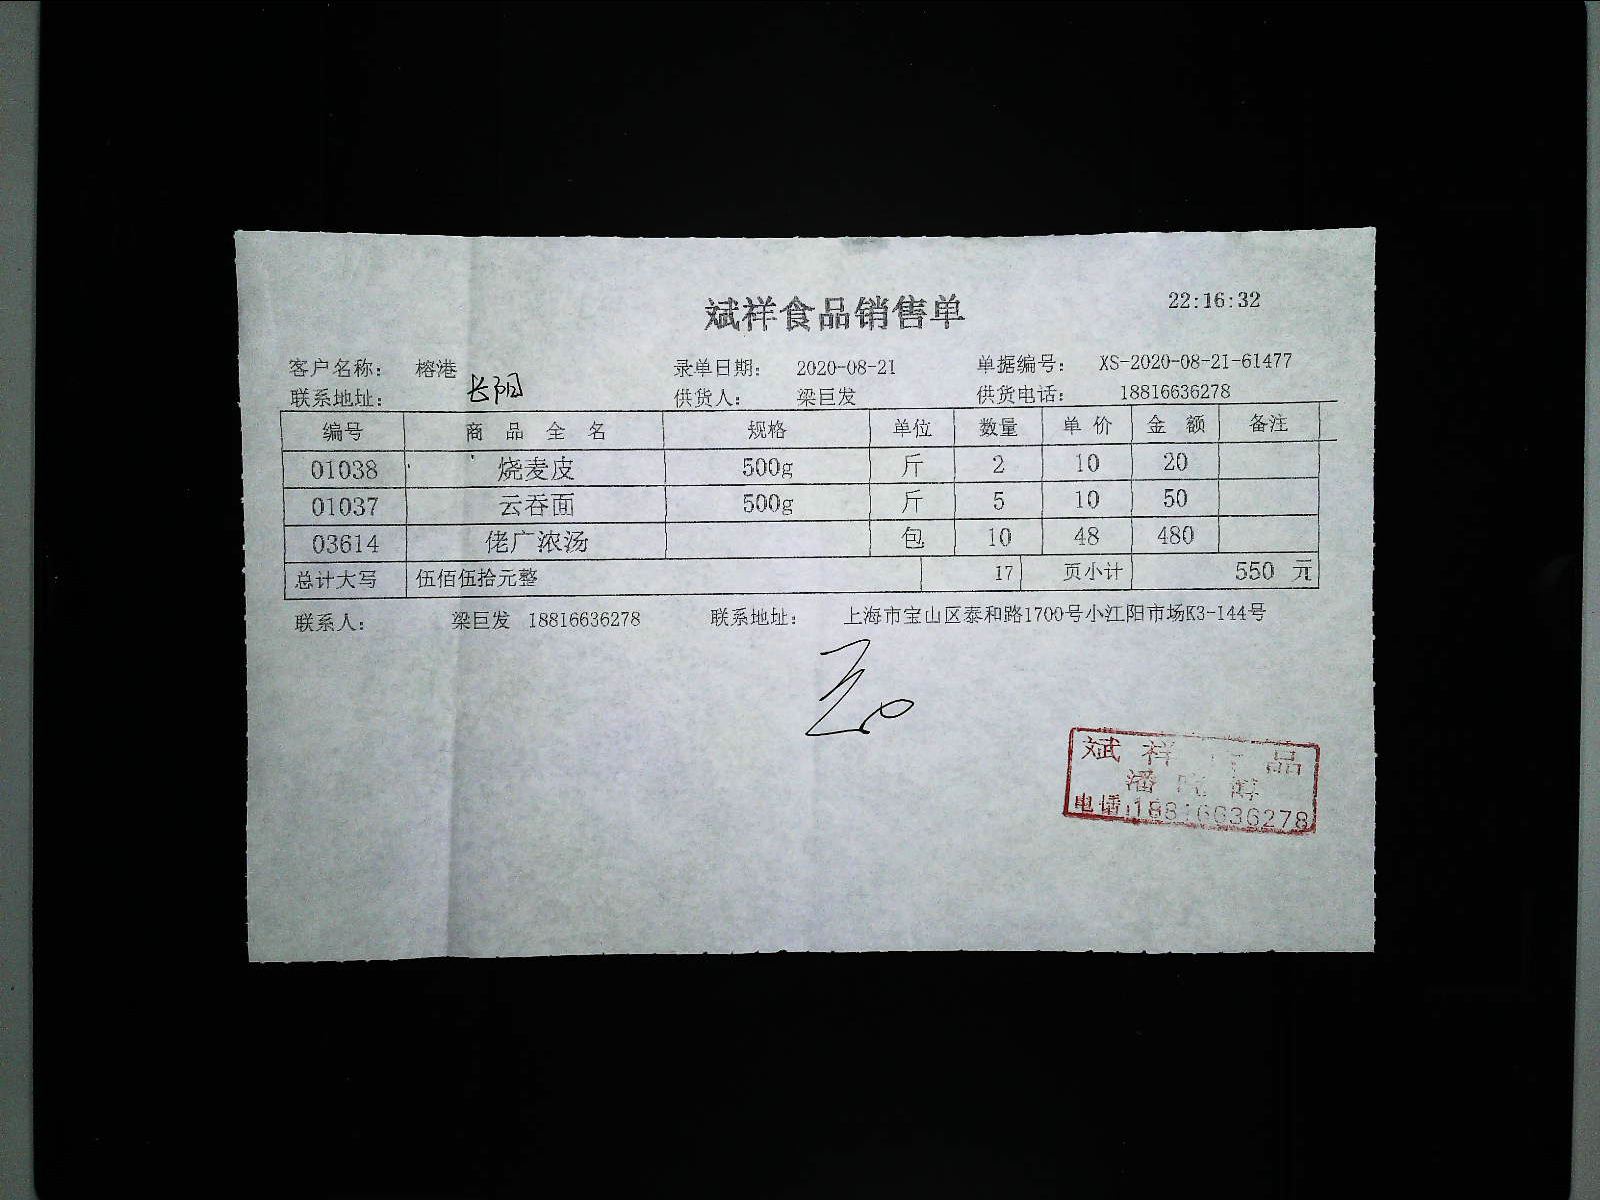 斌祥食品销售单 22:16:32
客户名称: 榕港 录单日期: 2020-08-21 单据编号: XS-2020-08-21-61477
联系地址: 长阳 供货人: 梁巨发 供货电话: 18816636278
编号 商品全名 规格 单位 数量 单价 金额 备注
01038 烧麦皮 500g 斤 2 10 20
01037 云吞面 500g 斤 5 10 50
03614 佬广浓汤 包 10 48 480
总计大写 伍佰伍拾元整 17 页小计 550 元
联系人: 梁巨发 18816636278 联系地址: 上海市宝山区泰和路1700号小江阳市场K3-144号
斌祥 品
潘
电话:18816636278